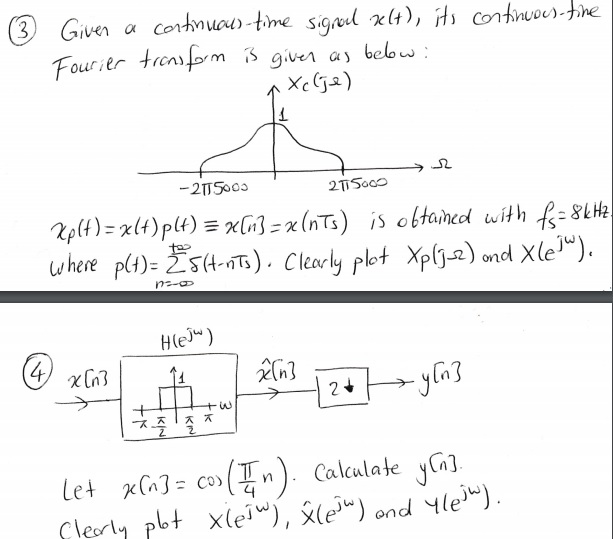 ③ Given a continuous-time signal x(t), its continuous-time
Fourier transform is given as below:
Xc(jΩ)
1
Ω
-2π5000 2π5000
xp(t)=x(t)p(t) ≡ x[n]=x(nTs) is obtained with fs=8kHz.
where p(t)= Σ_{n=-∞}^{+∞} δ(t-nTs). Clearly plot Xp(jΩ) and X(e^{jω}).
H(e^{jω})
④ x[n] 1 x̂[n] 2↓ y[n]
ω
-π -π/2 π/2 π
Let x[n] = cos(π/4 n). Calculate y[n].
Clearly plot X(e^{jω}), X̂(e^{jω}) and Y(e^{jω}).